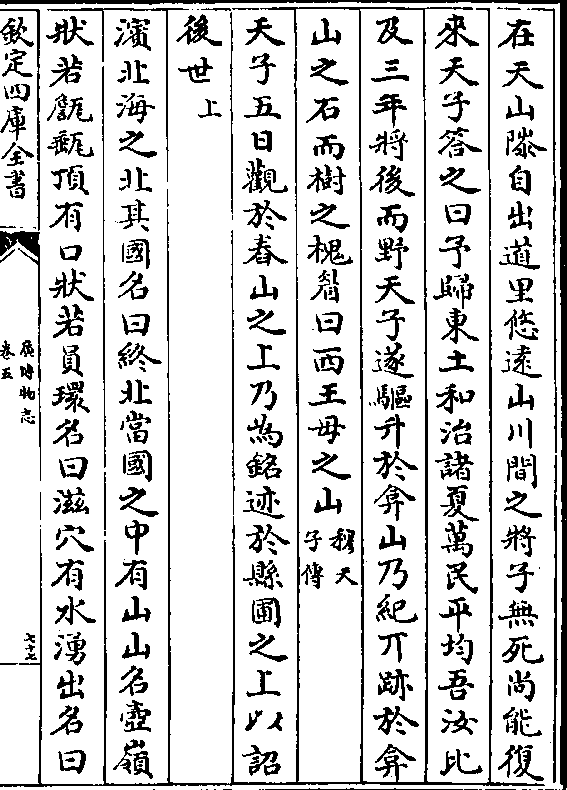 在天山𨻶自出道里悠遠山川間之將子無死尚能復
來天子答之曰予歸東土和治諸夏萬民平均吾汝比
及三年將後而野天子遂驅升於弇山乃紀丌跡於弇
山之石而樹之槐眉曰西王母之山穆天子傳
天子五日觀於舂山之上乃為銘迹於縣圃之上以詔
後世上
濱北海之北其國名曰終北當國之中有山山名壺嶺
狀若甔甀頂有口狀若員環名曰滋穴有水湧出名曰
欽定四庫全書
廣博物志
卷五
七十七